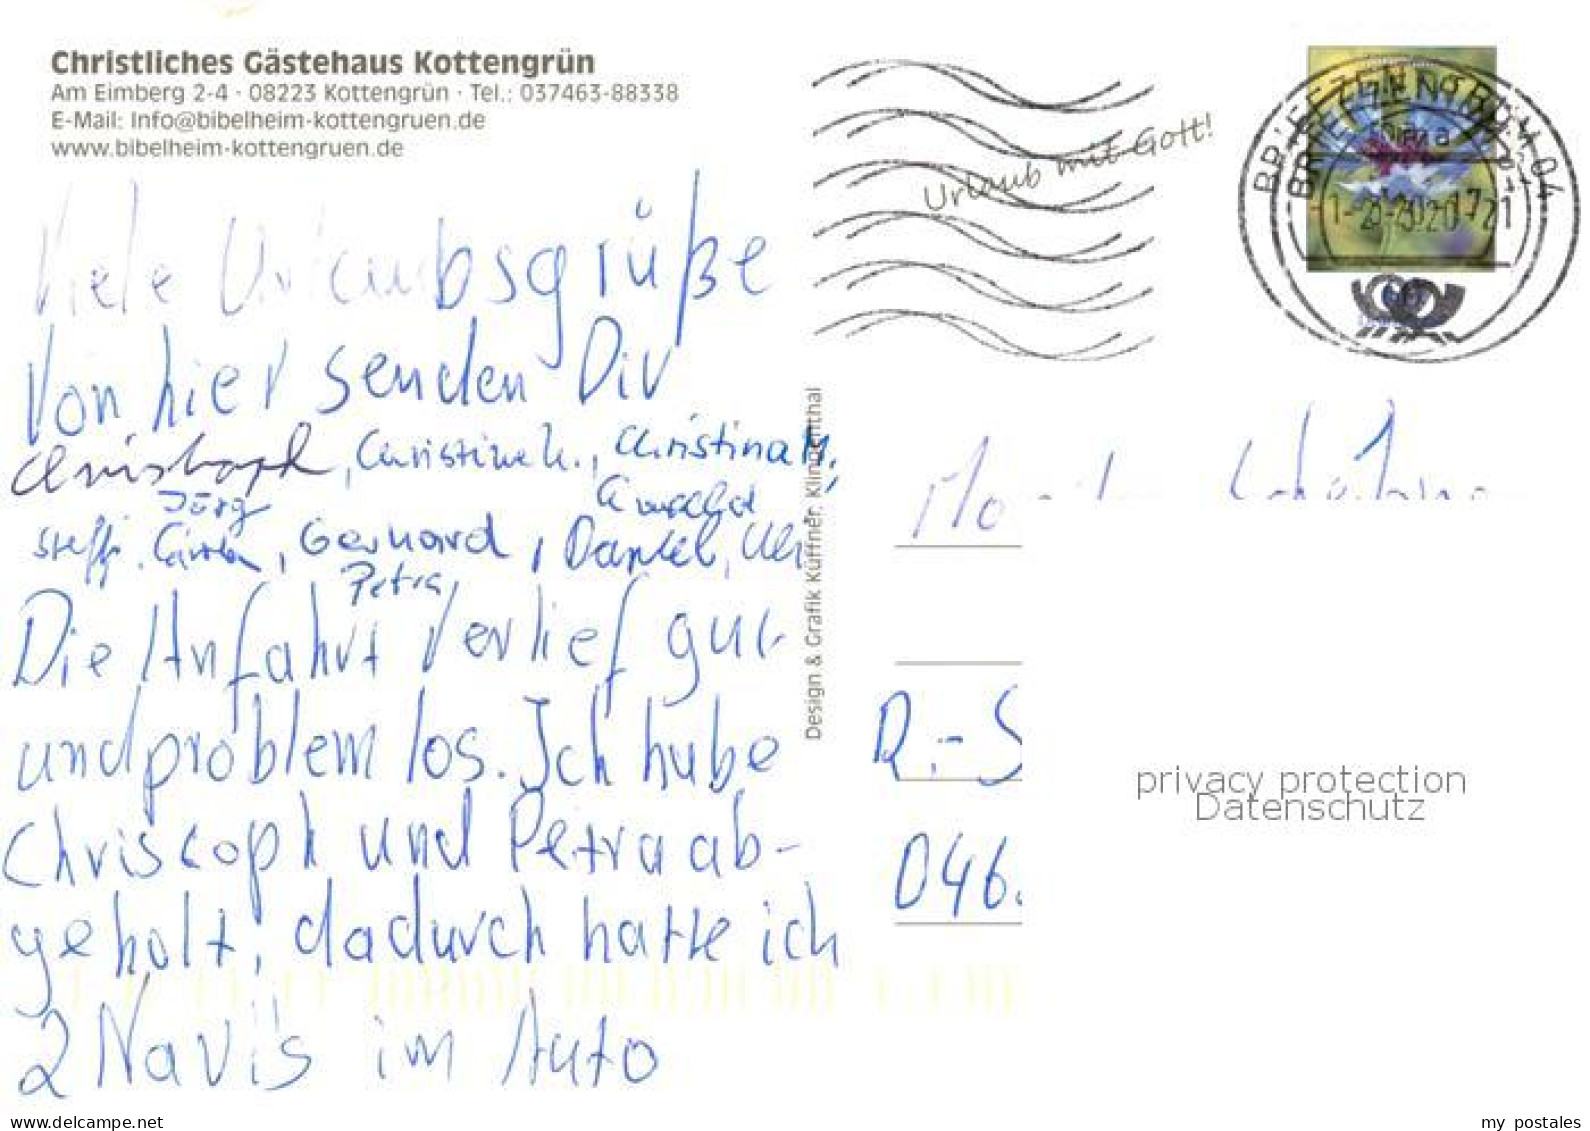 Christliches Gästehaus Kottengrün
Am Eimberg 2-4 · 08223 Kottengrün · Tel.: 037463-88338
E-Mail: Info@bibelheim-kottengruen.de
www.bibelheim-kottengruen.de
Urlaub mit Gott!
BRIEFZENTRUM 04
Viele Urlaubsgrüße
von hier senden Dir
Christoph, Christine h., Christina M,
Jörg
Steffi, Gerhard, Daniel,
Petra,
Die Anfahrt verlief gut
und problem los. Ich habe
Christoph und Petra ab-
geholt, dadurch hatte ich
2 Navi's im Auto
Design & Grafik Küffner, Klingenthal
046
privacy protection
Datenschutz
www.delcampe.net
my_postales